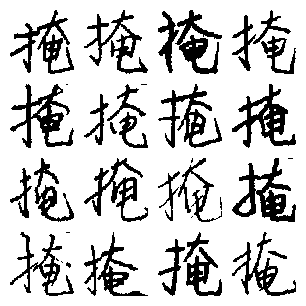 掩掩掩掩
掩掩掩掩
掩掩掩掩
掩掩掩掩